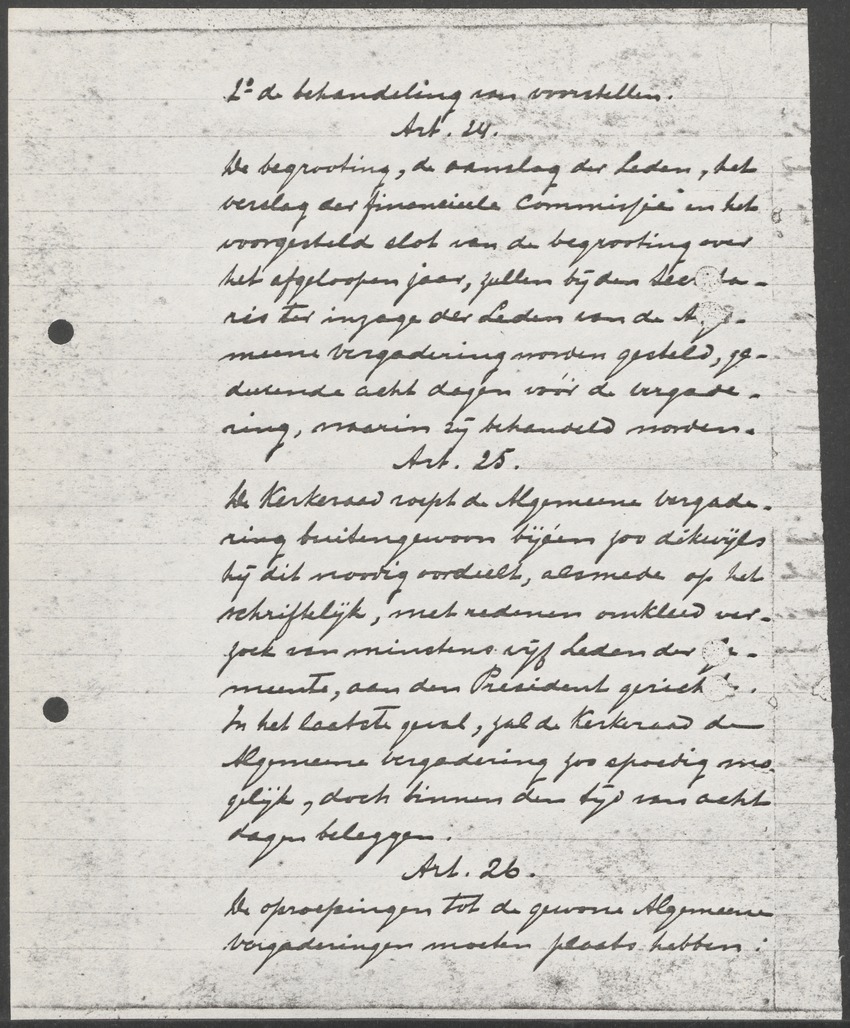 2º de behandeling van voorstellen.
Art. 24.
De begrooting, de aanslag der Leden, het
verslag der financieele Commissie en het
voorgesteld slot van de begrooting over
het afgeloopen jaar, zullen bij den Secreta-
ris ter inzage der Leden van de Alge-
meene vergadering worden gesteld, ge-
durende acht dagen vóór de vergade-
ring, waarin zij behandeld worden.
Art. 25.
De Kerkeraad roept de Algemeene vergade-
ring buitengewoon bijéén zoo dikwijls
hij dit noodig oordeelt, alsmede op het
schriftelijk, met redenen omkleed ver-
zoek van minstens vijf Leden der Ge-
meente, aan den President gericht.
In het laatste geval, zal de Kerkeraad de
Algemeene vergadering zoo spoedig mo
gelijk, doch binnen den tijd van acht
dagen beleggen.
Art. 26.
De oproepingen tot de gewone Algemeene
vergaderingen moeten plaats hebben: